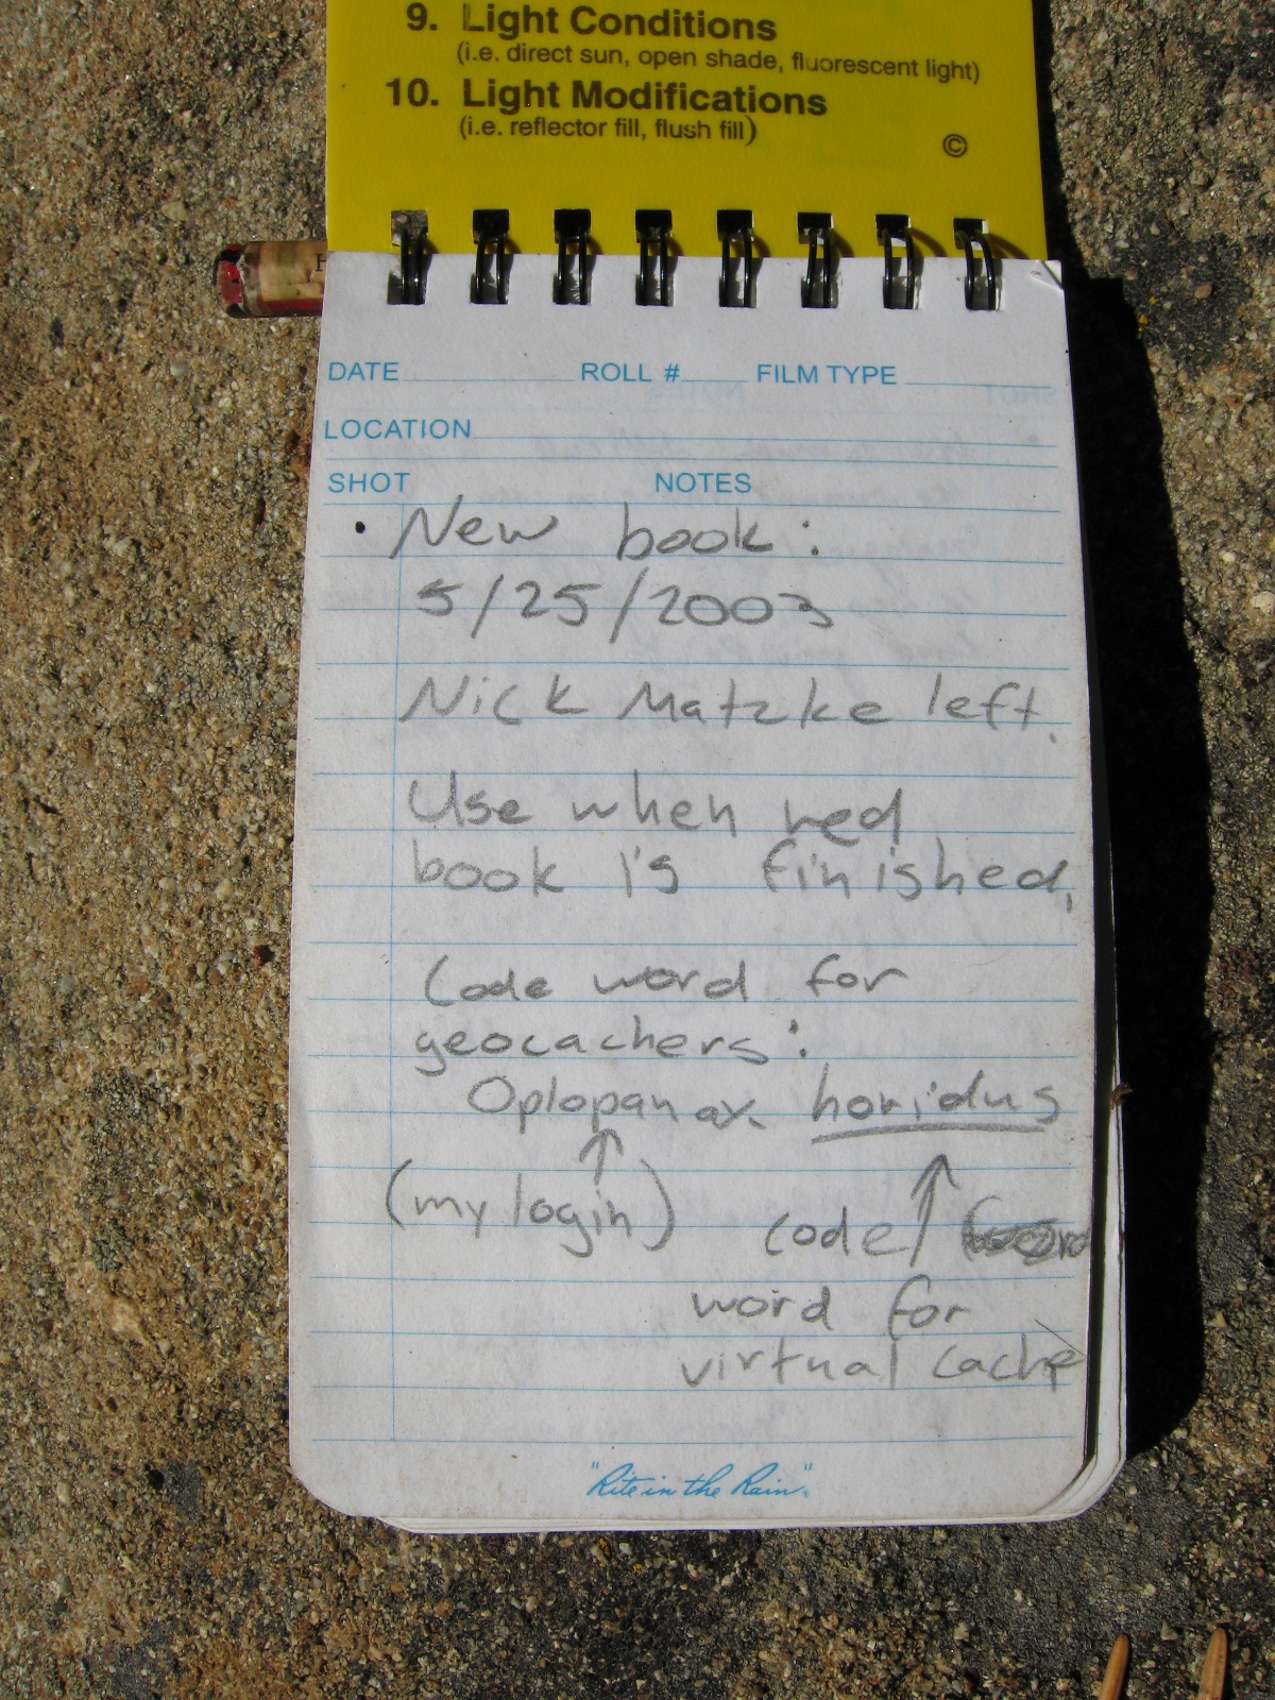 9. Light Conditions
(i.e. direct sun, open shade, fluorescent light)
10. Light Modifications
(i.e. reflector fill, flush fill)
©
DATE ROLL # FILM TYPE
LOCATION
SHOT NOTES
• New book:
5/25/2003
Nick Matzke left.
Use when red
book is finished,
Code word for
geocachers:
Oplopanax horidus
(my login) code
word for
virtual cache
"Rite in the Rain"